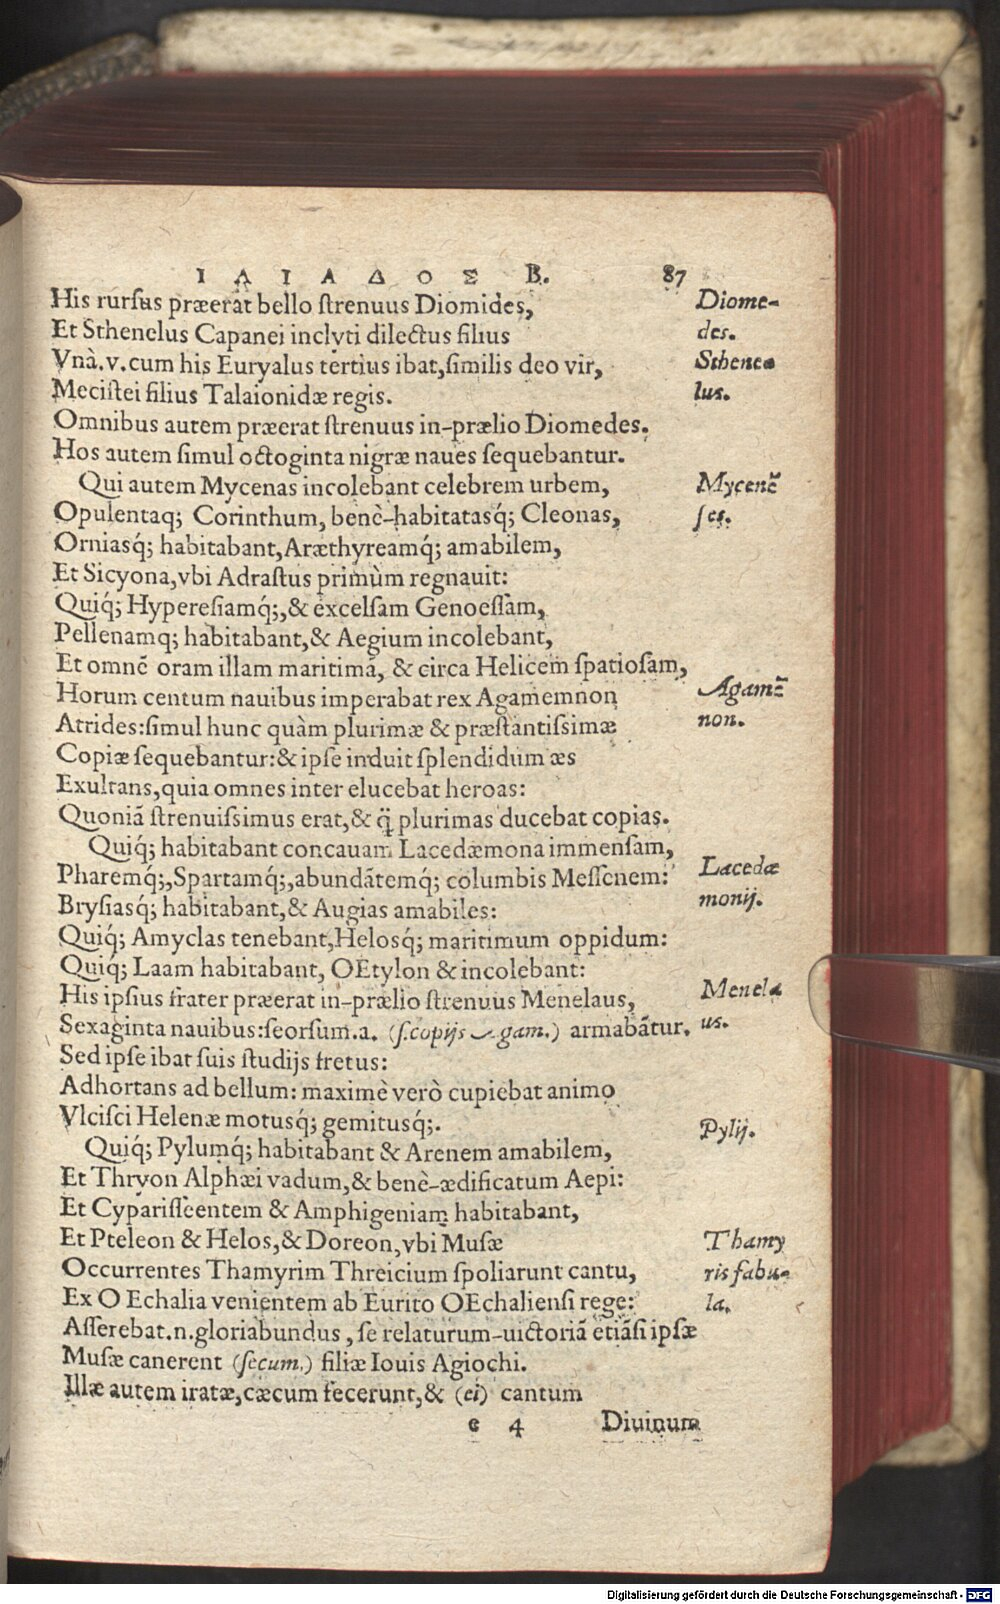 ΙΛΙΑΔΟΣ Β. 87
His rursus præerat bello strenuus Diomides, Diome-
Et Sthenelus Capanei inclyti dilectus filius des.
Vnà.v.cum his Euryalus tertius ibat,similis deo vir, Sthene-
Mecistei filius Talaionidæ regis. lus.
Omnibus autem præerat strenuus in-prælio Diomedes.
Hos autem simul octoginta nigræ naues sequebantur.
Qui autem Mycenas incolebant celebrem urbem, Mycenẽ
Opulentaq; Corinthum, benè-habitatasq́; Cleonas, ses.
Orniasq́; habitabant,Aræthyreamq́; amabilem,
Et Sicyona,vbi Adrastus primùm regnauit:
Quiq́; Hyperesiamq́;,& excelsam Genoessam,
Pellenamq; habitabant,& Aegium incolebant,
Et omnẽ oram illam maritimã, & circa Helicem spatiosam,
Horum centum nauibus imperabat rex Agamemnon Agamẽ
Atrides:simul hunc quàm plurimæ & præstantissimæ non.
Copiæ sequebantur:& ipse induit splendidum æs
Exultans,quia omnes inter elucebat heroas:
Quoniã strenuissimus erat,& q̃ plurimas ducebat copias.
Quiq́; habitabant concauam Lacedæmona immensam,
Pharemq́;,Spartamq́;,abundãtemq́; columbis Messenem: Lacedæ
Brysiasq́; habitabant,& Augias amabiles: monij.
Quiq́; Amyclas tenebant,Helosq́; maritimum oppidum:
Quiq́; Laam habitabant, OEtylon & incolebant:
His ipsius frater præerat in-prælio strenuus Menelaus, Menela
Sexaginta nauibus:seorsum.a. (s.copijs Agam.) armabãtur. us.
Sed ipse ibat suis studijs fretus:
Adhortans ad bellum: maximè verò cupiebat animo
Vlcisci Helenæ motusq́; gemitusq́;.
Quiq́; Pylumq́; habitabant & Arenem amabilem, Pylij.
Et Thryon Alphæi vadum,& benè-ædificatum Aepi:
Et Cyparisseentem & Amphigeniam habitabant,
Et Pteleon & Helos,& Doreon,vbi Musæ Thamy
Occurrentes Thamyrim Threicium spoliarunt cantu, ris fabu-
Ex OEchalia venientem ab Eurito OEchaliensi rege: la.
Asserebat.n.gloriabundus, se relaturum-uictoriã etiãsi ipsæ
Musæ canerent (secum.) filiæ Iouis Agiochi.
Illæ autem iratæ,cæcum fecerunt,& (ei) cantum
e 4 Diuinum
Digitalisierung gefördert durch die Deutsche Forschungsgemeinschaft - DFG